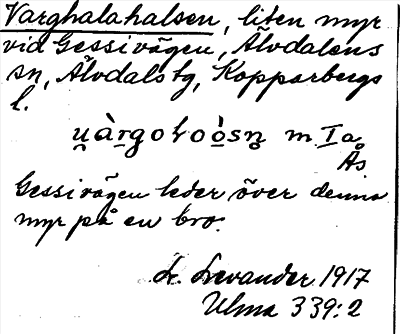 Varghalahalsen, liten myr
vid Gessivägen, Älvdalens
sn, Älvdals tg, Kopparbergs
l.
u̯àrgoɫoòsn̥ m. I a.
Ås
Gessivägen leder över denna
myr på en bro.
L. Levander 1917
Ulma 339:2